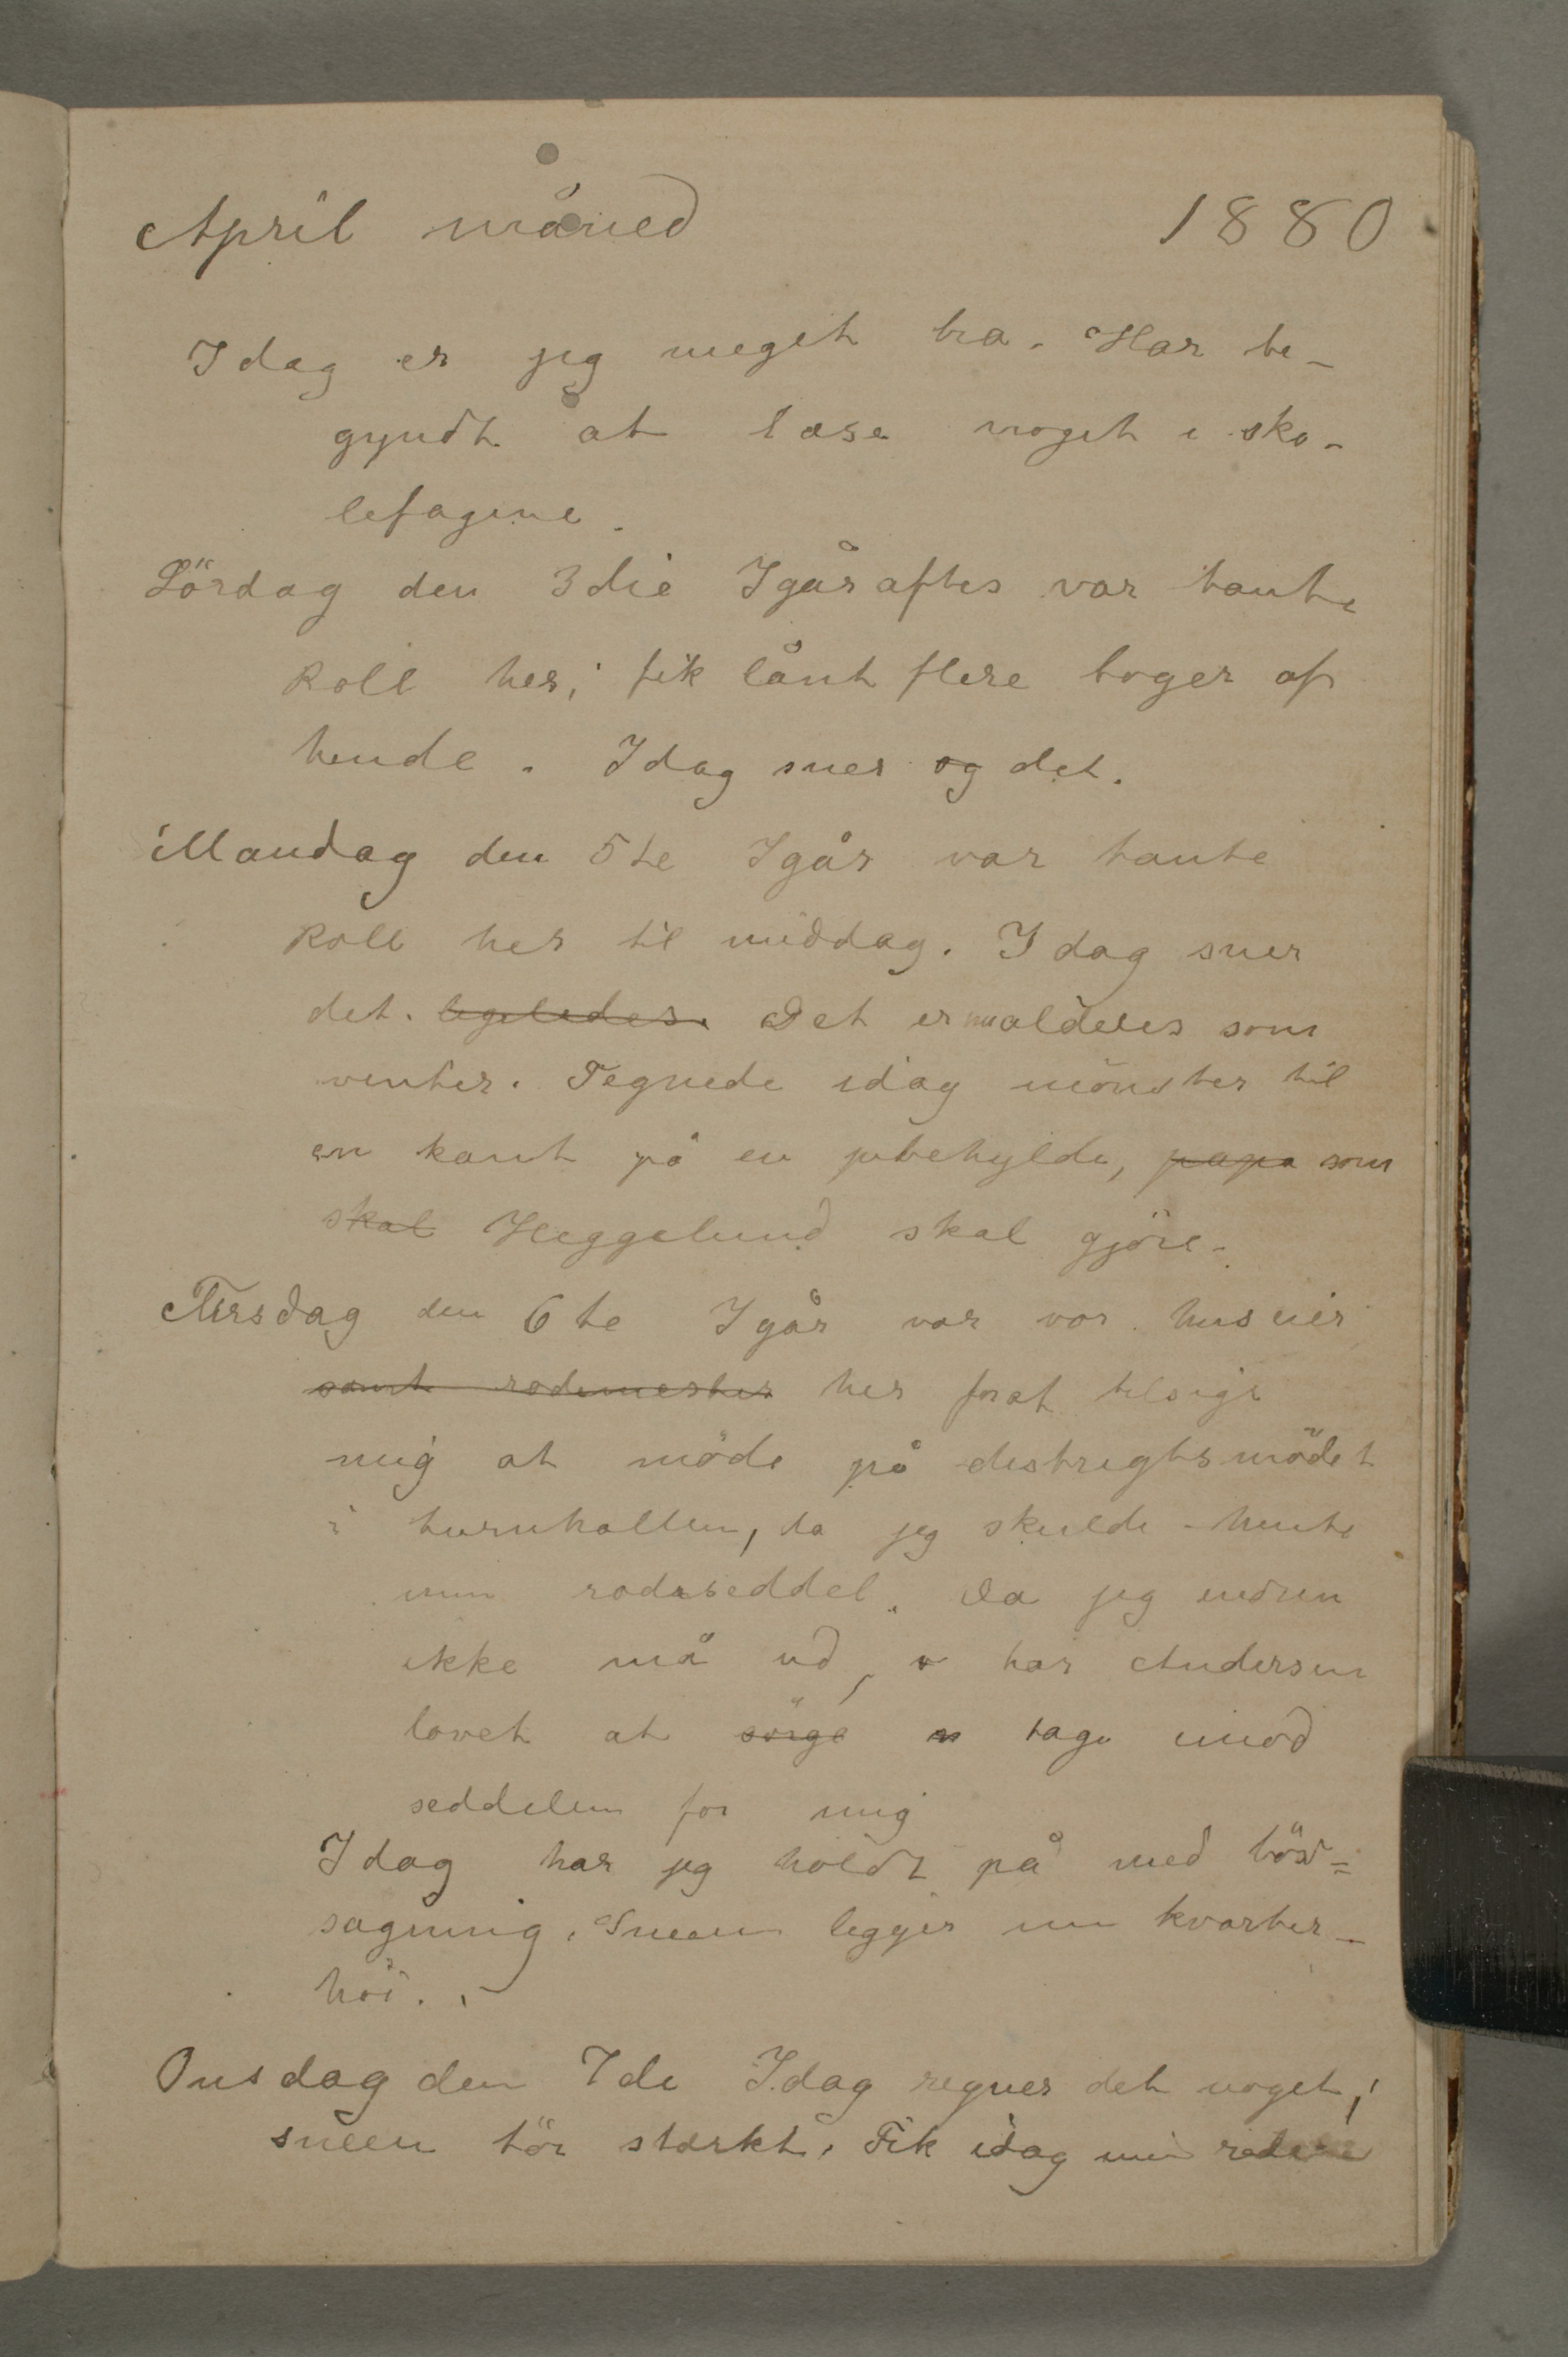 April måned 1880
Idag er jeg meget bra. Har be-
gyndt at læse noget i sko-
lefagene.
Lördag den 3die Igåraftes var tante
Roll her; fik lånt flere boger af
hende. Idag sner og det.
Mandag den 5te Igår var tante
Roll her til middag. Idag sner
det. ligeledes. Det er nu aldeles som
vinter. Tegnede idag mönster til
en kant på en pibehylde, papa som
skal Heggelund skal gjöre.
Tirsdag den 6te Igår var vor huseier
samt rodemester her forat tilsige
mig at möde på distrigtsmödet
i turnhallen, da jeg skulde hente
min rodeseddel. Da jeg endnu
ikke må ud, har Andersen
lovet at sörge tage imod
seddelen for mig
Idag har jeg holdt på med löv=
sagning. Sneen legger en kvarter-
höi.
Onsdag den 7de Idag regner det noget;
sneen tör stærkt. Fik idag min